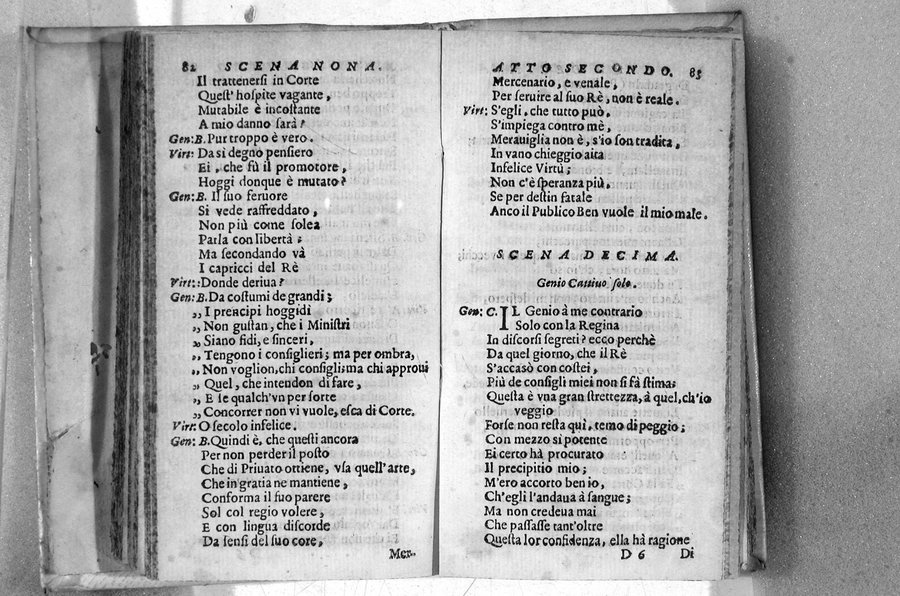 82 SCENA NONA.
Il trattenersi in Corte
Quest' hospite vagante,
Mutabile è incostante
A mio danno sarà?
Gen: B. Pur troppo è vero.
Virt: Da si degno pensiero
Ei, che fù il promotore,
Hoggi donque è mutato?
Gen: B. Il suo feruore
Si vede raffreddato,
Non più come solea
Parla con libertà;
Ma secondando và
I capricci del Rè
Virt: Donde deriua?
Gen: B. Da costumi de grandi;
„ I prencipi hoggidì
„ Non gustan, che i Ministri
„ Siano fidi, e sinceri,
„ Tengono i consiglieri; ma per ombra,
„ Non voglion, chi consigli; ma chi approui
„ Quel, che intendon di fare,
„ E se qualch'vn per sorte
„ Concorrer non vi vuole, esca di Corte.
Virt: O secolo infelice.
Gen: B. Quindi è, che questi ancora
Per non perder il posto
Che di Priuato ottiene, vsa quell' arte,
Che in gratia ne mantiene,
Conforma il suo parere
Sol col regio volere,
E con lingua discorde
Da sensi del suo core,
Mer-
ATTO SECONDO. 83
Mercenario, e venale,
Per seruire al suo Rè, non è reale.
Virt: S'egli, che tutto può,
S'impiega contro mè,
Merauiglia non è, s'io son tradita,
In vano chieggio aita
Infelice Virtù;
Non c'è speranza più,
Se per destin fatale
Anco il Publico Ben vuole il mio male.
SCENA DECIMA.
Genio Cattiuo solo.
Gen: C. IL Genio à me contrario
Solo con la Regina
In discorsi segreti? ecco perchè
Da quel giorno, che il Rè
S'accasò con costei,
Più de consigli miei non si fà stima;
Questa è vna gran strettezza, à quel, ch'io
veggio
Forse non resta quì, temo di peggio;
Con mezzo si potente
Ei certo hà procurato
Il precipitio mio;
M'ero accorto ben io,
Ch'egli l'andaua à sangue;
Ma non credeua mai
Che passasse tant'oltre
Questa lor confidenza, ella hà ragione
D 6 Di